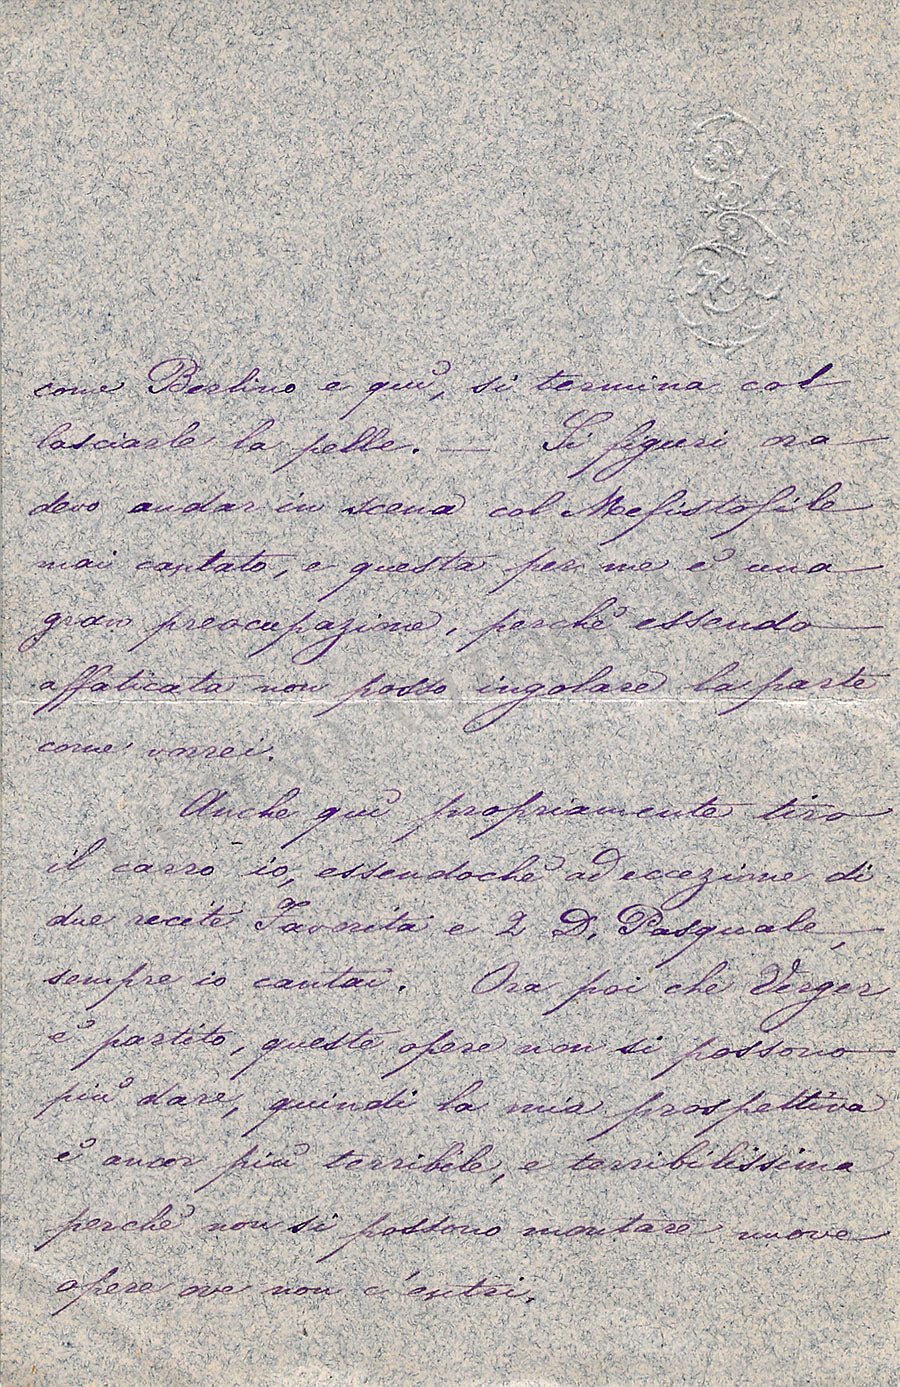 come Berlino e quì, si termina col
lasciarle la pelle. — Si figuri ora
devo andar in scena col Mefistofile
mai cantato, e questa per me è una
gran preocupazione, perchè essendo
affaticata non posso ingolare la parte
come vorrei.
Anche quì propriamente tiro
il carro io, essendochè ad eccezione di
due recite Favorita e 2 D. Pasquale,
sempre io cantai. Ora poi che Verger
è partito, queste opere non si possono
più dare, quindi la mia prospettiva
è ancor più terribile, e terribilissima
perchè non si possono montare nuove
opere ove non c'entri.